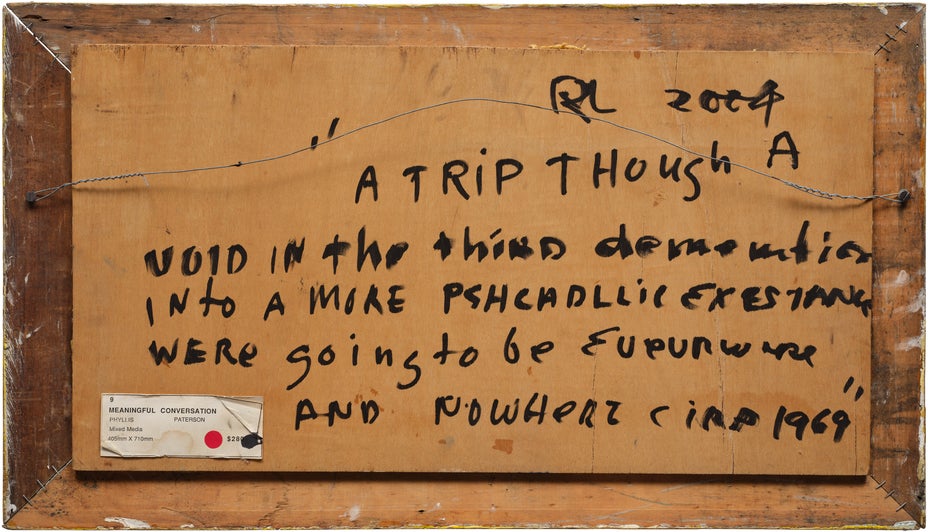 2004
" A TRiP THough A
VOID IN the third
INto A MORE PSHCADLLic
WERE going to be
AND NOWHERE CIRA 1969"
9
MEANINGFUL CONVERSATION
PHYLLIS PATERSON
Mixed Media
405mm X 710mm $280